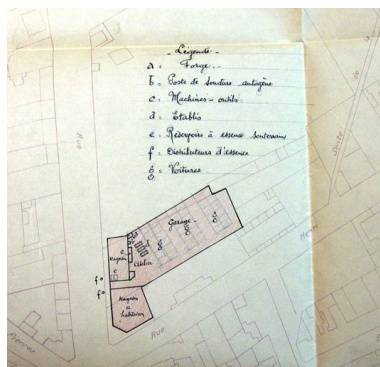 - Légende -
a = Forge. -
b = Poste de soudure autogène
c = Machines-outils
d = Etablis
e = Réservoirs à essence souterrain
f = Distributeurs d'essence
g = Voitures
Garage -
Magasin
Atelier
Magasin
et
habitation
f
f
e
e
g
g
g
Rue
Rue
Henri